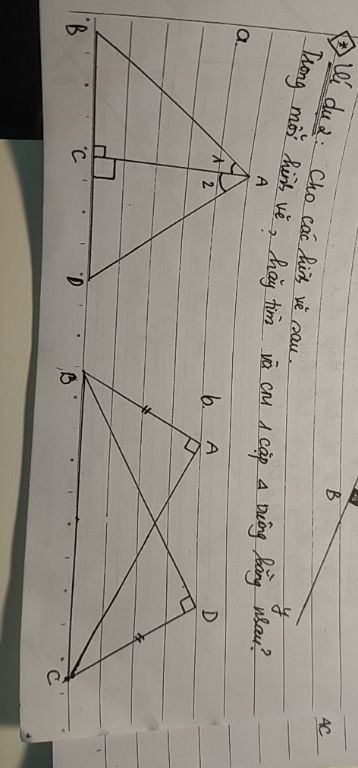 * Ví dụ 2: Cho các hình vẽ sau.
Trong mỗi hình vẽ, hãy tìm và CM 1 cặp Δ vuông bằng nhau?
a.
b.
B
C
D
A
1
2
B
A
D
C
B
y
AC